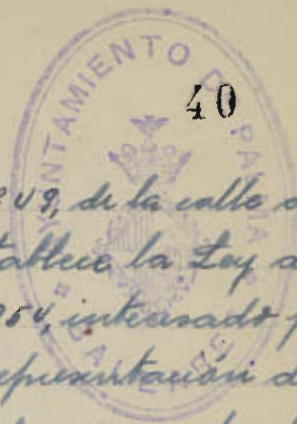 AYUNTAMIENTO DE PALMA
BALEARES
40
249, de la calle
tablece la Ley
954, interesado
representación d